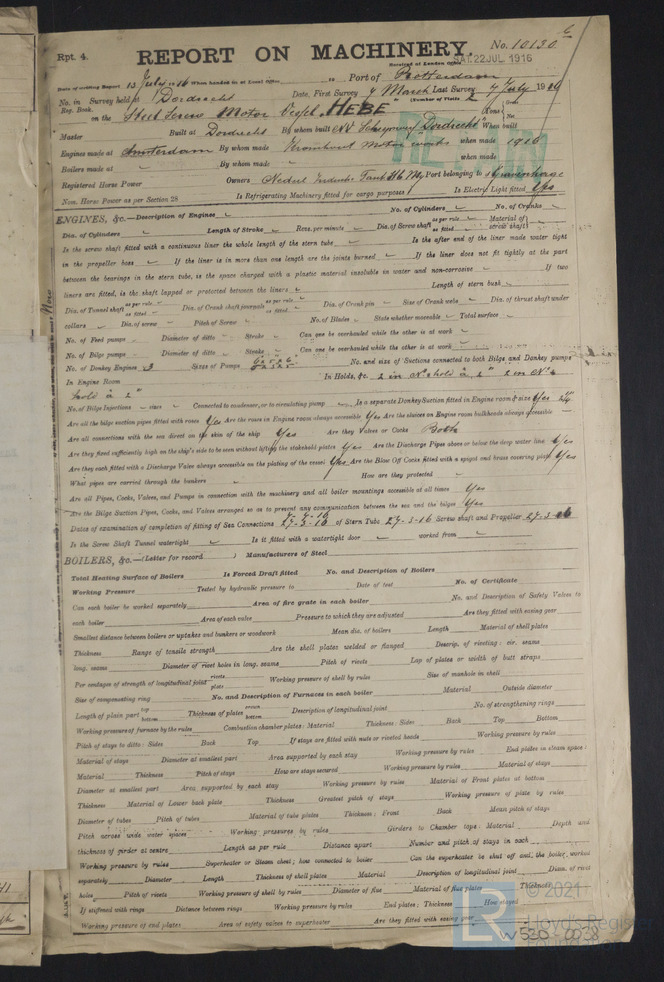 Rpt. 4.
REPORT ON MACHINERY.
No. 10130
Received at London Office
SAT. 22 JUL 1916
Date of writing Report 13 July 1916 When handed in at Local Office 19 Port of Rotterdam
No. in Survey held at Dordrecht Date, First Survey 7 March Last Survey 7 July 1916
Reg. Book. (Number of Visits 2
on the Steel Screw Motor Vessel "HEBE" Tons Gross Net
Master Built at Dordrecht By whom built N.V. Scheepswerf "Dordrecht" When built
Engines made at Amsterdam By whom made Kromhout Motor works when made 1916
Boilers made at By whom made when made
Registered Horse Power Owners Nederl. Indische Tank Port belonging to 's Gravenhage
Nom. Horse Power as per Section 28 Is Refrigerating Machinery fitted for cargo purposes Is Electric Light fitted Yes
RETAIN
ENGINES, &c.—Description of Engines No. of Cylinders No. of Cranks
Dia. of Cylinders Length of Stroke Revs. per minute Dia. of Screw shaft as per rule as fitted Material of screw shaft
Is the screw shaft fitted with a continuous liner the whole length of the stern tube Is the after end of the liner made water tight
in the propeller boss If the liner is in more than one length are the joints burned If the liner does not fit tightly at the part
between the bearings in the stern tube, is the space charged with a plastic material insoluble in water and non-corrosive If two
liners are fitted, is the shaft lapped or protected between the liners Length of stern bush
Dia. of Tunnel shaft as per rule as fitted Dia. of Crank shaft journals as per rule as fitted Dia. of Crank pin Size of Crank webs Dia. of thrust shaft under
collars Dia. of screw Pitch of Screw No. of Blades State whether moveable Total surface
No. of Feed pumps Diameter of ditto Stroke Can one be overhauled while the other is at work
No. of Bilge pumps Diameter of ditto Stroke Can one be overhauled while the other is at work
No. of Donkey Engines 3 Sizes of Pumps No. and size of Suctions connected to both Bilge and Donkey pumps
In Engine Room In Holds, &c. 2 in No 1 hold à 2" 2 in No 2
hold à 2"
No. of Bilge Injections sizes Connected to condenser, or to circulating pump Is a separate Donkey Suction fitted in Engine room & size Yes
Are all the bilge suction pipes fitted with roses Yes Are the roses in Engine room always accessible Yes Are the sluices on Engine room bulkheads always accessible
Are all connections with the sea direct on the skin of the ship Yes Are they Valves or Cocks Both
Are they fixed sufficiently high on the ship's side to be seen without lifting the stokehold plates Yes Are the Discharge Pipes above or below the deep water line Yes
Are they each fitted with a Discharge Valve always accessible on the plating of the vessel Yes Are the Blow Off Cocks fitted with a spigot and brass covering plate Yes
What pipes are carried through the bunkers How are they protected
Are all Pipes, Cocks, Valves, and Pumps in connection with the machinery and all boiler mountings accessible at all times Yes
Are the Bilge Suction Pipes, Cocks, and Valves arranged so as to prevent any communication between the sea and the bilges Yes
Dates of examination of completion of fitting of Sea Connections 27-3-16 of Stern Tube 27-3-16 Screw shaft and Propeller 27-3-16
Is the Screw Shaft Tunnel watertight Is it fitted with a watertight door worked from
BOILERS, &c.—(Letter for record ) Manufacturers of Steel
Total Heating Surface of Boilers Is Forced Draft fitted No. and Description of Boilers
Working Pressure Tested by hydraulic pressure to Date of test No. of Certificate
Can each boiler be worked separately Area of fire grate in each boiler No. and Description of Safety Valves to
each boiler Area of each valve Pressure to which they are adjusted Are they fitted with easing gear
Smallest distance between boilers or uptakes and bunkers or woodwork Mean dia. of boilers Length Material of shell plates
Thickness Range of tensile strength Are the shell plates welded or flanged Descrip. of riveting: cir. seams
long. seams Diameter of rivet holes in long. seams Pitch of rivets Lap of plates or width of butt straps
Per centages of strength of longitudinal joint rivets plate Working pressure of shell by rules Size of manhole in shell
Size of compensating ring No. and Description of Furnaces in each boiler Material Outside diameter
Length of plain part top bottom Thickness of plates crown bottom Description of longitudinal joint No. of strengthening rings
Working pressure of furnace by the rules Combustion chamber plates: Material Thickness: Sides Back Top Bottom
Pitch of stays to ditto: Sides Back Top If stays are fitted with nuts or riveted heads Working pressure by rules
Material of stays Diameter at smallest part Area supported by each stay Working pressure by rules End plates in steam space:
Material Thickness Pitch of stays How are stays secured Working pressure by rules Material of stays
Diameter at smallest part Area supported by each stay Working pressure by rules Material of Front plates at bottom
Thickness Material of Lower back plate Thickness Greatest pitch of stays Working pressure of plate by rules
Diameter of tubes Pitch of tubes Material of tube plates Thickness: Front Back Mean pitch of stays
Pitch across wide water spaces Working pressures by rules Girders to Chamber tops: Material Depth and
thickness of girder at centre Length as per rule Distance apart Number and pitch of stays in each
Working pressure by rules Superheater or Steam chest; how connected to boiler Can the superheater be shut off and the boiler worked
separately Diameter Length Thickness of shell plates Material Description of longitudinal joint Diam. of rivet
holes Pitch of rivets Working pressure of shell by rules Diameter of flue Material of flue plates Thickness
If stiffened with rings Distance between rings Working pressure by rules End plates: Thickness How stayed
Working pressure of end plates Area of safety valves to superheater Are they fitted with easing gear
© 2021
LR
Lloyd's Register
W520-0038